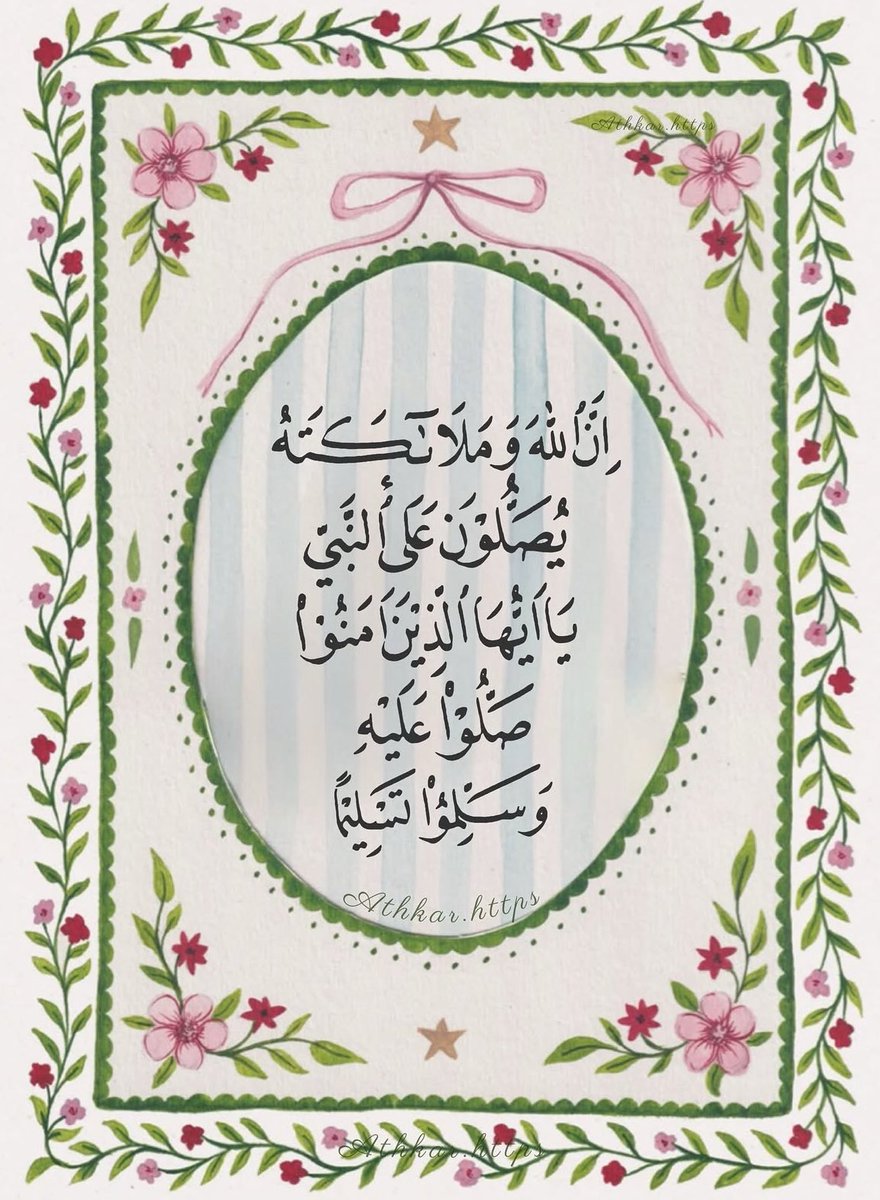 Athkar.https
اِنَّ ٱللهَ وَ مَلَائِكَتَهُ
يُصَلُّوْنَ عَلَى ٱلنَّبَيِّ
يَا اَيُّهَا ٱلَّذِيْنَ اَمَنُوْا
صَلُّوْا عَلَيْهِ
وَ سَلِّمُوْا تَسْلِيْمًا
Athkar.https
Athkar.https